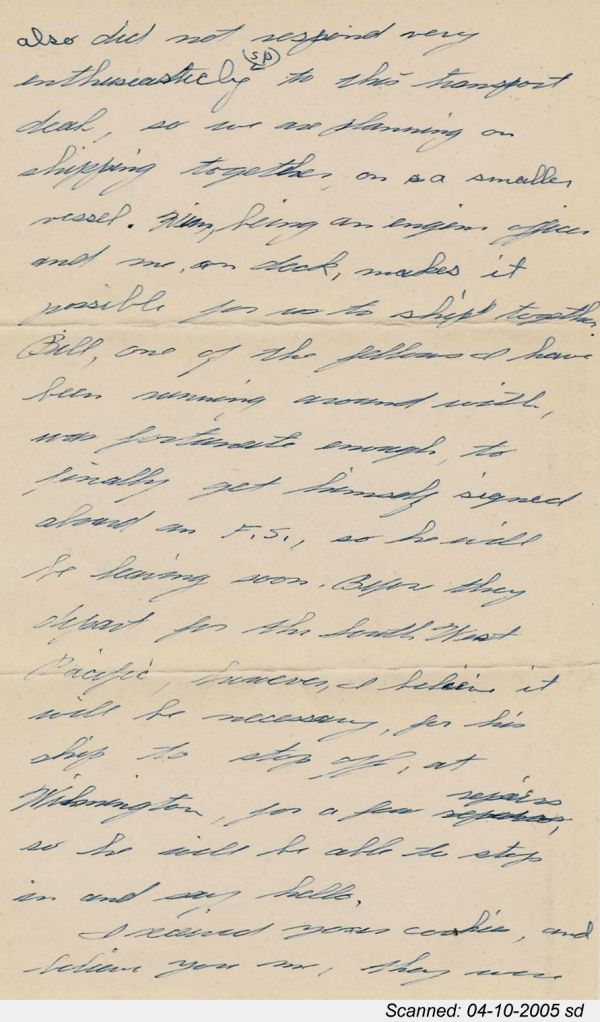 also did not respond very
enthuseasticly (sp) to this transport
deal, so we are planning on
shipping together, on a smaller
vessel. Him, being an engine officer
and me, on deck, makes it
possible for us to "ship" together.
Bill, one of the fellows I have
been running around with,
was fortunate enough, to
finally get himself signed
aboard an F.S., so he will
be leaving soon. Before they
depart for the South West
Pacific, however, I believe it
will be necessary, for his
ship to stop off, at
Wilmington, for a few repairs,
so he will be able to stop
in and say hello.
I received your cookies, and
believe you me, they were
Scanned: 04-10-2005 sd